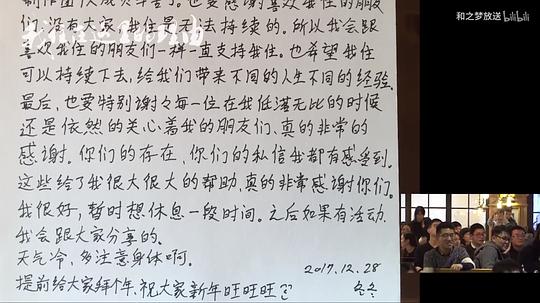 和之梦放送 bilibili
制作团队成员辛苦。也要感谢喜欢我住的朋友
们,没有大家,我住是无法持续的。所以我会跟
喜欢我住的朋友们一样一直支持我住。也希望我住
可以持续下去,给我们带来不同的人生不同的经验。
最后,也要特别谢々每一位在我低潮无比的时候
还是依然的关心着我的朋友们、真的非常的
感谢。你们的存在,你们的私信我都有感受到。
这些给了我很大很大的帮助,真的非常感谢你们。
我很好,暂时想休息一段时间。之后如果有活动
我会跟大家分享的。
天气冷,多注意身体啊。
2017.12.28
提前给大家拜个年,祝大家新年旺旺旺